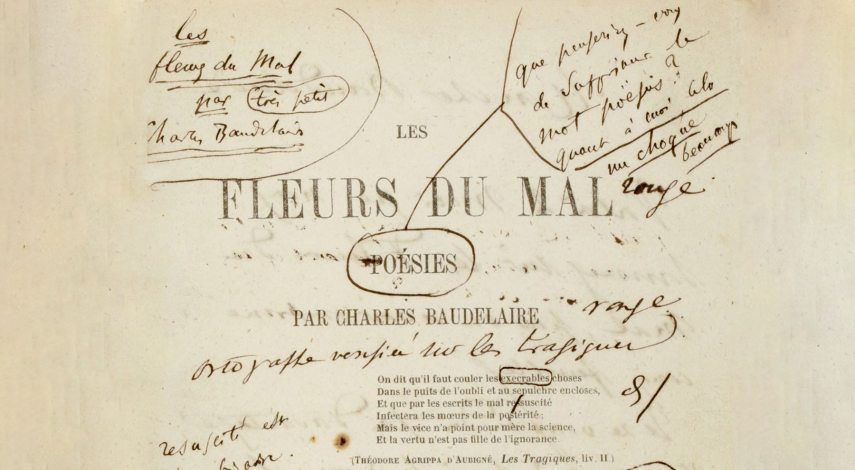 les
fleurs du Mal
par très petit
Charles Baudelaire
que penseriez-vous
de supprimer le
mot poësies ?
quant à moi cela
me choque
beaucoup
LES
FLEURS DU MAL
rouge.
POÉSIES
PAR CHARLES BAUDELAIRE
rouge
sur les tragiques
On dit qu'il faut couler les execrables choses
Dans le puits de l'oubli et au sepulchre encloses,
Et que par les escrits le mal ressuscité
Infectera les mœurs de la postérité;
Mais le vice n'a point pour mère la science,
Et la vertu n'est pas fille de l'ignorance.
(THÉODORE AGRIPPA D'AUBIGNÉ, Les Tragiques, liv. II.)
resuscité est